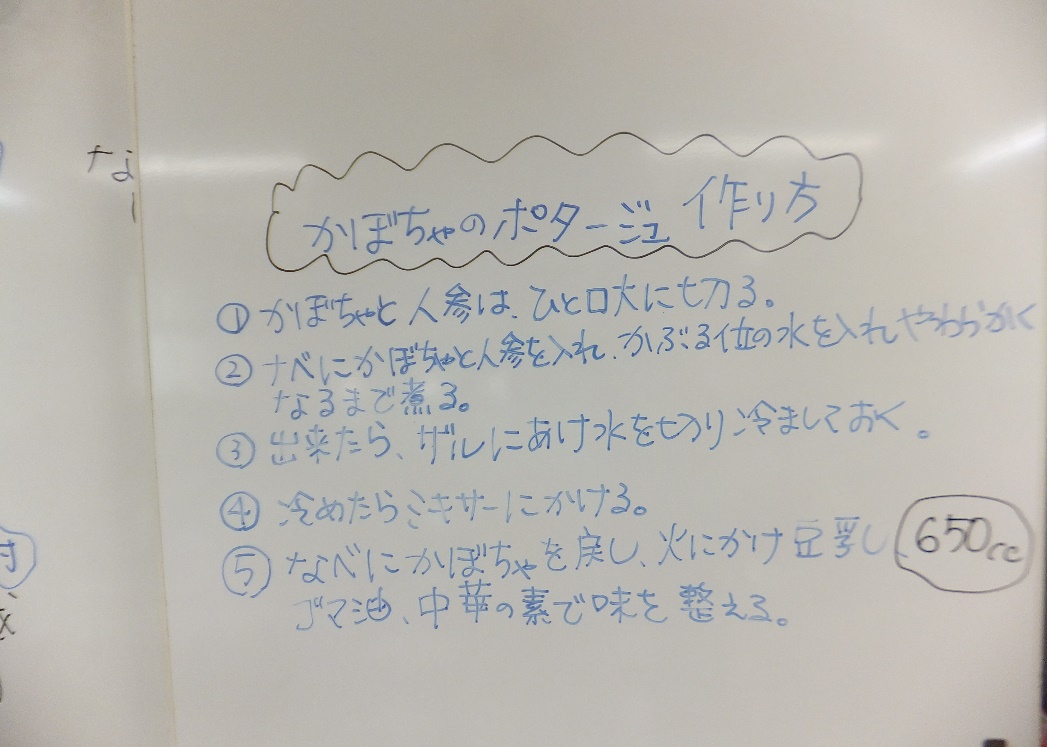 かぼちゃのポタージュ 作り方
① かぼちゃと人参は、ひと口大に切る。
② ナベにかぼちゃと人参を入れ、かぶる位の水を入れやわらかく
なるまで煮る。
③ 出来たら、ザルにあけ水を切り冷ましておく。
④ 冷めたらミキサーにかける。
⑤ なべにかぼちゃを戻し、火にかけ豆乳 650cc
ゴマ油、中華の素で味を整える。
な